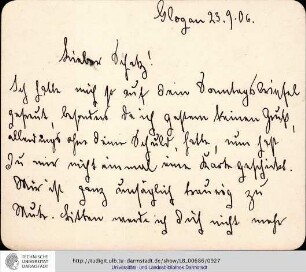 Glogau 23.9.06.
Lieber Schatz!
Ich hatte mich so auf Dein Sonntagsbriefel
gefreut, besonders da ich gestern keinen Gruß,
allerdings ohne Deine Schuld, hatte, nun hast
Du mir nicht einmal eine Karte geschickt.
Mir ist ganz unsäglich traurig zu
Mute. Bitten werde ich Dich nicht mehr
TECHNISCHE
UNIVERSITÄT
DARMSTADT
http://tudigit.ulb.tu-darmstadt.de/show/LBL00686/0327
Universitäts- und Landesbibliothek Darmstadt